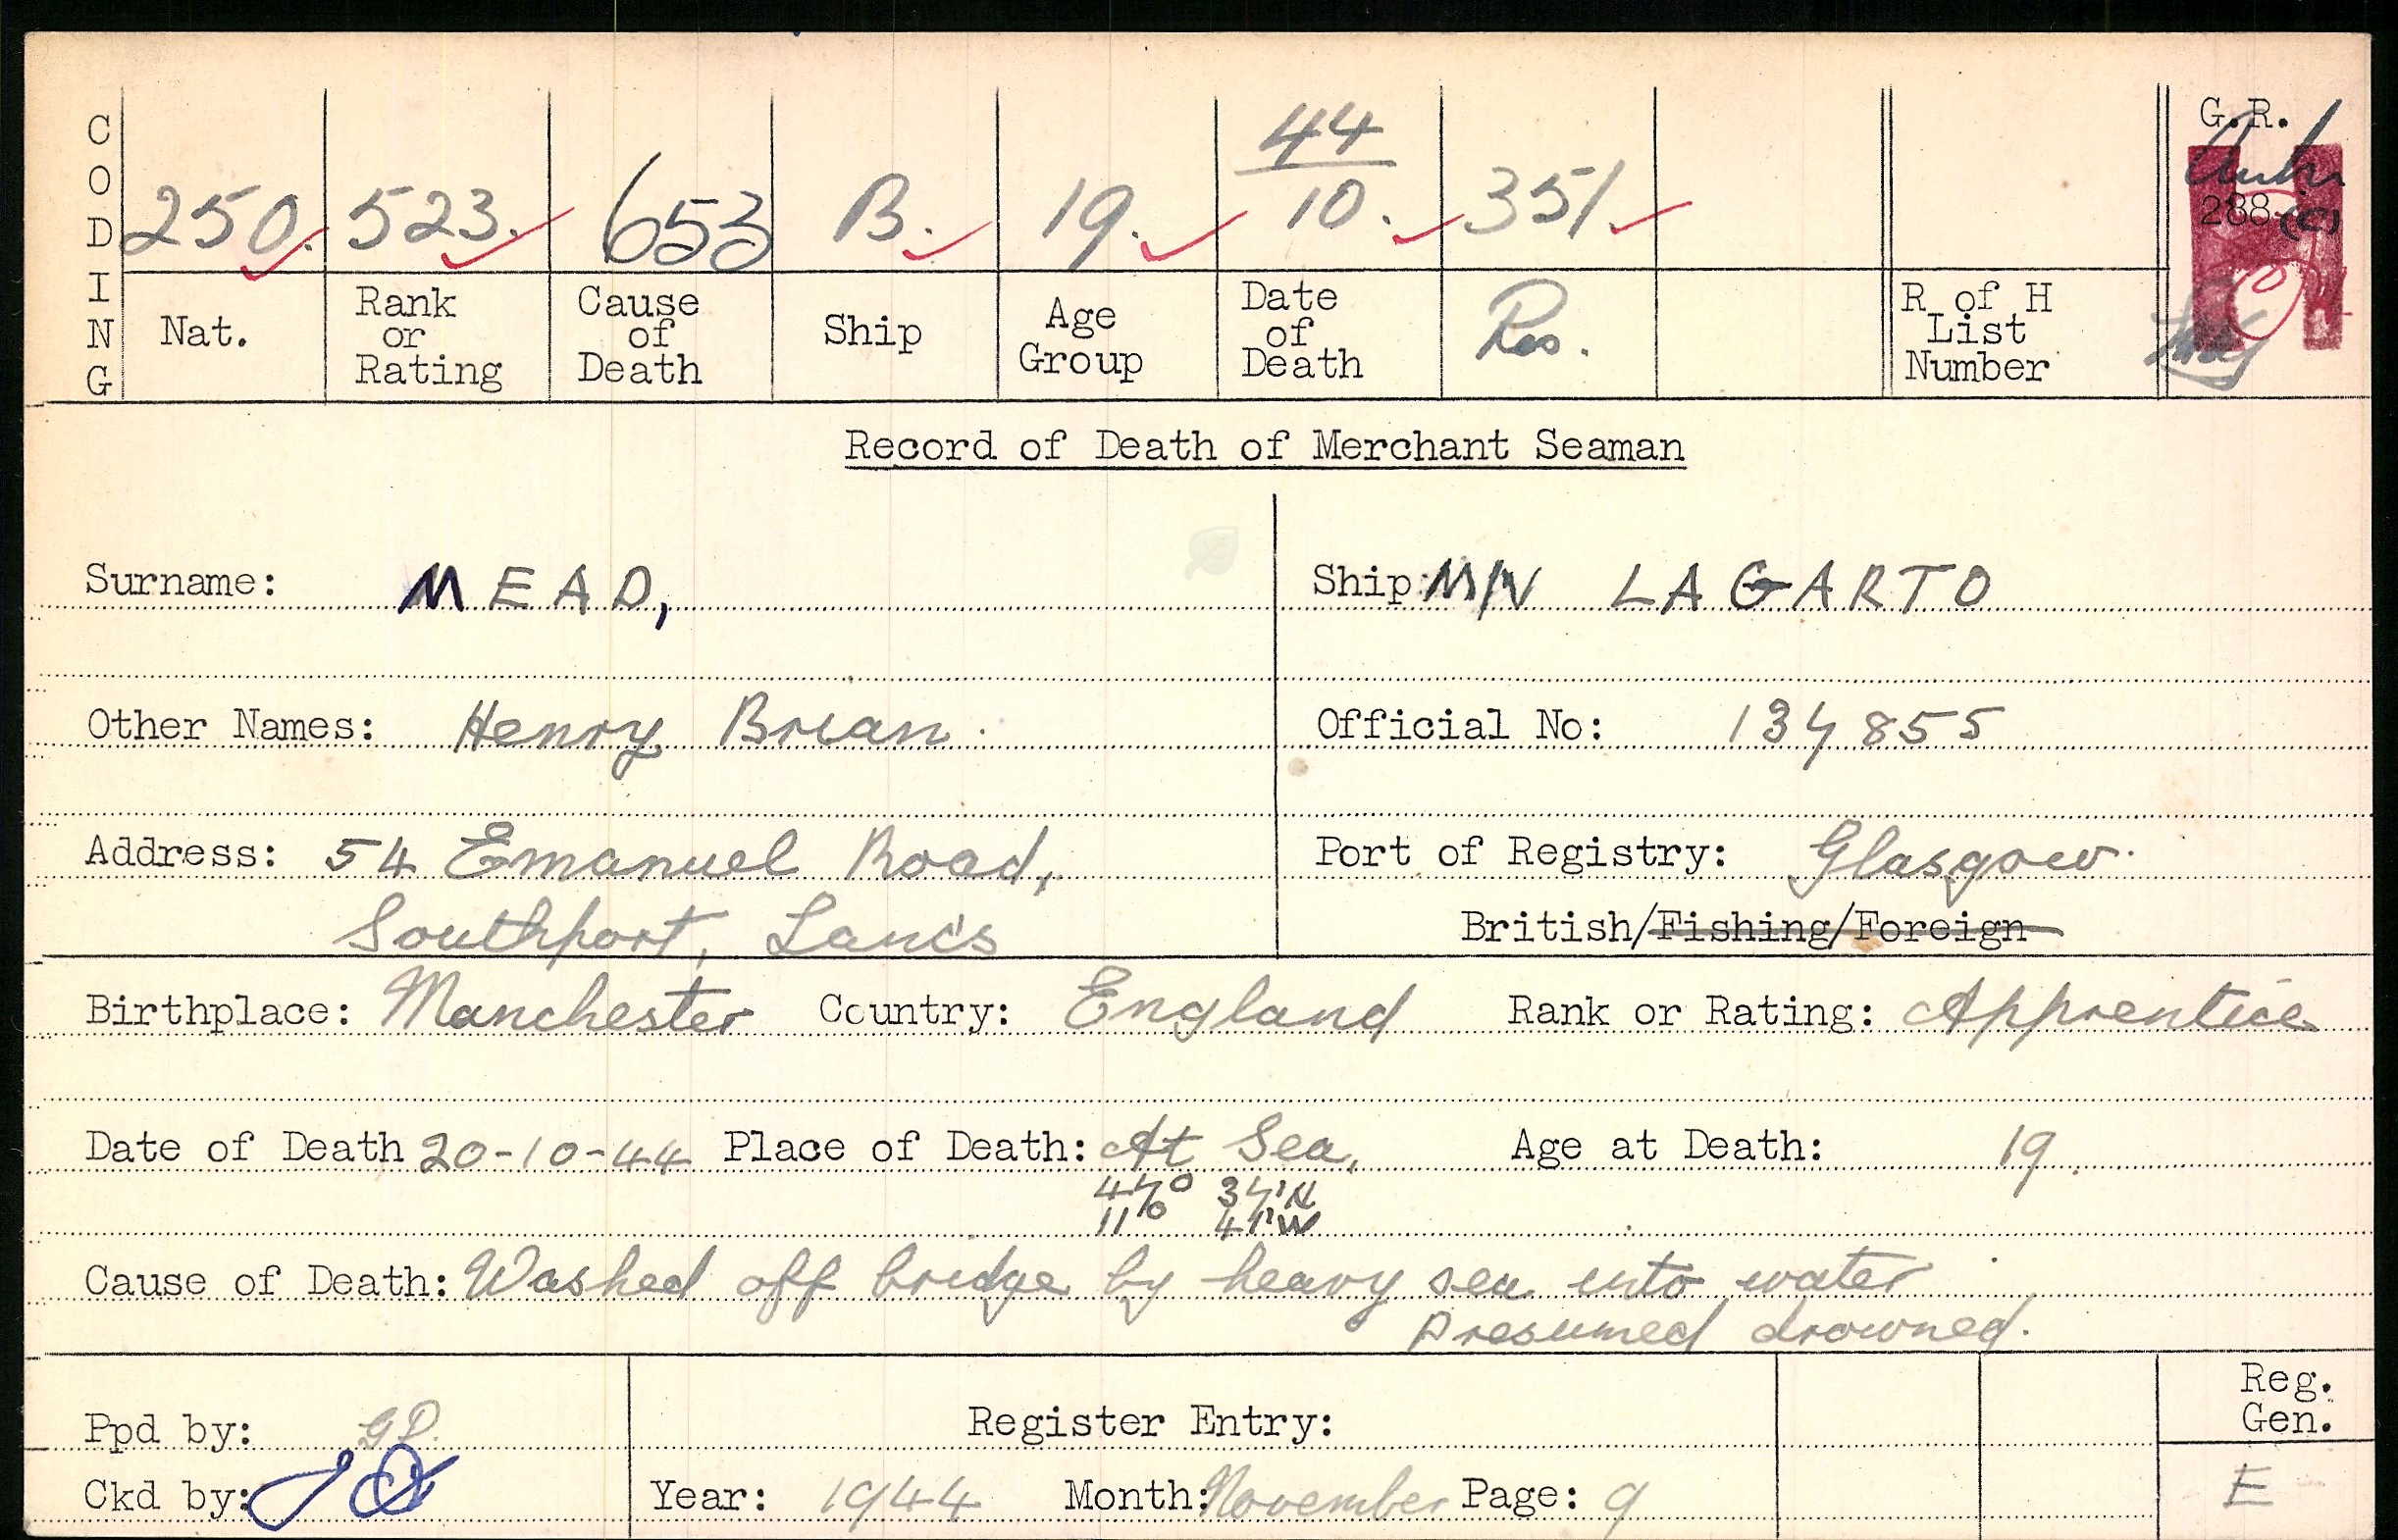 CODING
250. 523. 653 B. 19. 44/10. 351
G.R.
288 (C)
Nat. Rank or Rating Cause of Death Ship Age Group Date of Death Res. R of H List Number
Record of Death of Merchant Seaman
Surname: MEAD, Ship: M/V LAGARTO
Other Names: Henry Brian. Official No: 137855
Address: 54 Emanuel Road, Port of Registry: Glasgow.
Southport, Lancs British/Fishing/Foreign
Birthplace: Manchester Country: England Rank or Rating: Apprentice
Date of Death 20-10-44 Place of Death: At Sea, Age at Death: 19.
47° 37'N
11° 41'W
Cause of Death: Washed off bridge by heavy sea into water
presumed drowned.
Reg. Gen.
Ppd by: GP. Register Entry:
Ckd by: Year: 1944 Month: November Page: 9 E